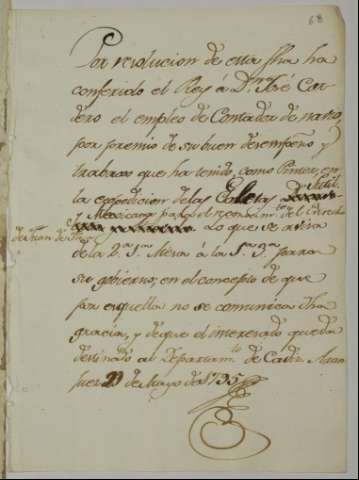 68
Por resolucion de esta fha ha
conferido el Rey á Dn. José Car-
dero el empleo de Contador de navio,
por premio de su buen desempeño y
trabaxos que ha tenido, como Pintor, en
la expedicion de las Goletas Sutil
y Mexicana para el reconocimto. del Estrecho
de Juan de Fuca Lo que se avisa
de la Rl. á la para
su gobierno, en el concepto de que
por aquella no se comunica dha
gracia, y de que el interesado queda
destinado al Departamto. de Cadiz. Aran
juez de de 1795